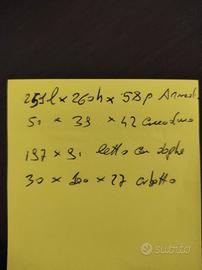 251l x 260h x 58p Armad
50 x 39 x 42 comodino
197 x 91 letto con doghe
30 x 200 x 27
subito